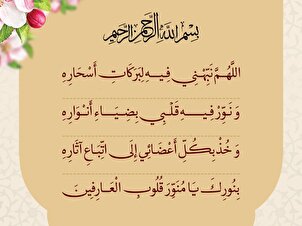 بِسْمِ اللَّهِ الرَّحْمٰنِ الرَّحِیمِ
اللَّهُمَّ نَبِّهْنِي فِيهِ لِبَرَكَاتِ أَسْحَارِهِ
وَ نَوِّرْ فِيهِ قَلْبِي بِضِيَاءِ أَنْوَارِهِ
وَ خُذْ بِكُلِّ أَعْضَائِي إِلَى اتِّبَاعِ آثَارِهِ
بِنُورِكَ يَا مُنَوِّرَ قُلُوبِ الْعَارِفِينَ